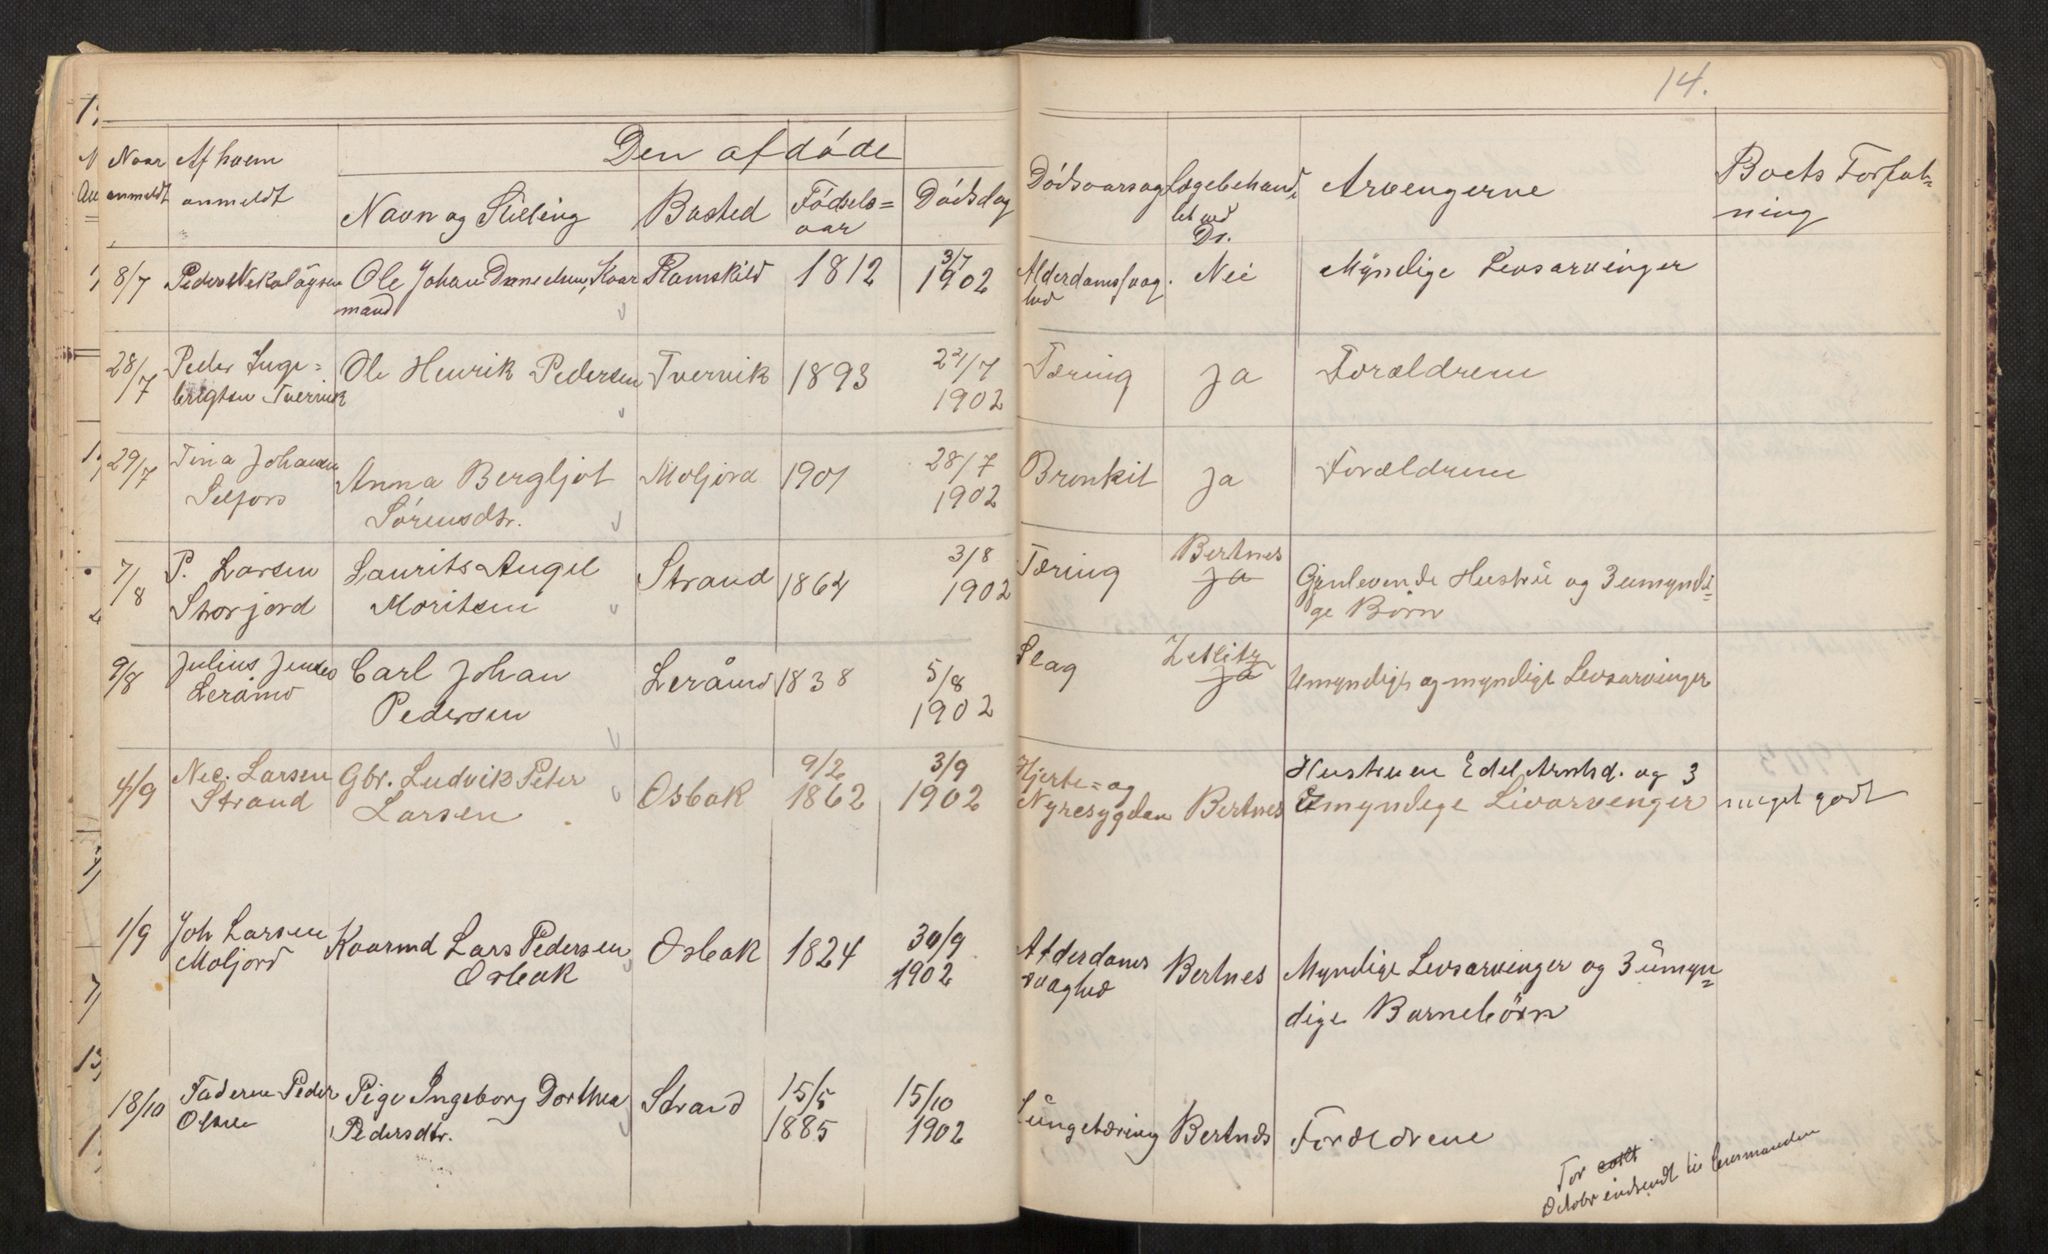 14.
Naar anmeldt
Af hvem anmeldt
Den afdøde
Navn og Stilling
Bosted
Fødsels= aar
Dødsdag
Dødsaarsag
Lægebehand= let ved Dr.
Arvingerne
Boets Forfat= ning
8/7 Peder Nikolaysen Ole Johan Danielsen, Kaar Ramskild 1812 3/7 1902 Alderdomssvag. Nei Myndige Livsarvinger
mand hed
28/7 Peder Inge= Ole Henrik Pedersen Tvervik 1893 22/7 Tæring Ja Forældrene
brigtsen Tvervik 1902
29/7 Tina Johansen Anna Bergljot Moljord 1901 28/7 Bronkit Ja Forældrene
Selfors Sørensdtr. 1902
7/8 P. Larsen Laurits Angel Strand 1864 3/8 Tæring Bertnes Ja Gjenlevende Hustru og 3 umyndi=
Storjord Moritsen 1902 ge Børn
9/8 Julius Jensen Carl Johan Leråmo 1838 5/8 Slag Zetlitz Ja Umyndige og myndige Livsarvinger
Leråmo Pedersen 1902
4/9 Nic. Larsen Gbr. Ludvik Peter Osbak 9/2 1862 3/9 1902 Hjerte= og Bertnes Hustruen Edel Arntsd. og 3
Strand Larsen Nyresygdom Umyndige Livarvinger meget godt
1/9 Joh Larsen Kaarmd Lars Pedersen Osbak 1824 30/9 Alderdoms Bertnes Myndige Livsarvinger og 3 umyn=
Moljord Osbak 1902 svaghed dige Barnebörn
18/10 Faderen Peder Pige Ingeborg Dorthea Strand 15/5 15/10 Lungetæring Bertnes Forældrene
Olsen Pedersdtr. 1885 1902
For
Octobr indsendt til lensmanden